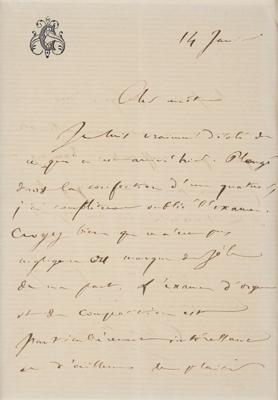 14 Jan
Cher ami
Je suis vraiment désolé de
ce qui m'est arrivé hier. Plongé
dans la confection d'un quatuor,
j'ai complètement oublié l'examen.
Croyez bien que ce n'est pas
négligence ou manque de zèle
de ma part, l'examen d'orgue
et de composition est
particulièrement intéressant
et d'ailleurs le plaisir